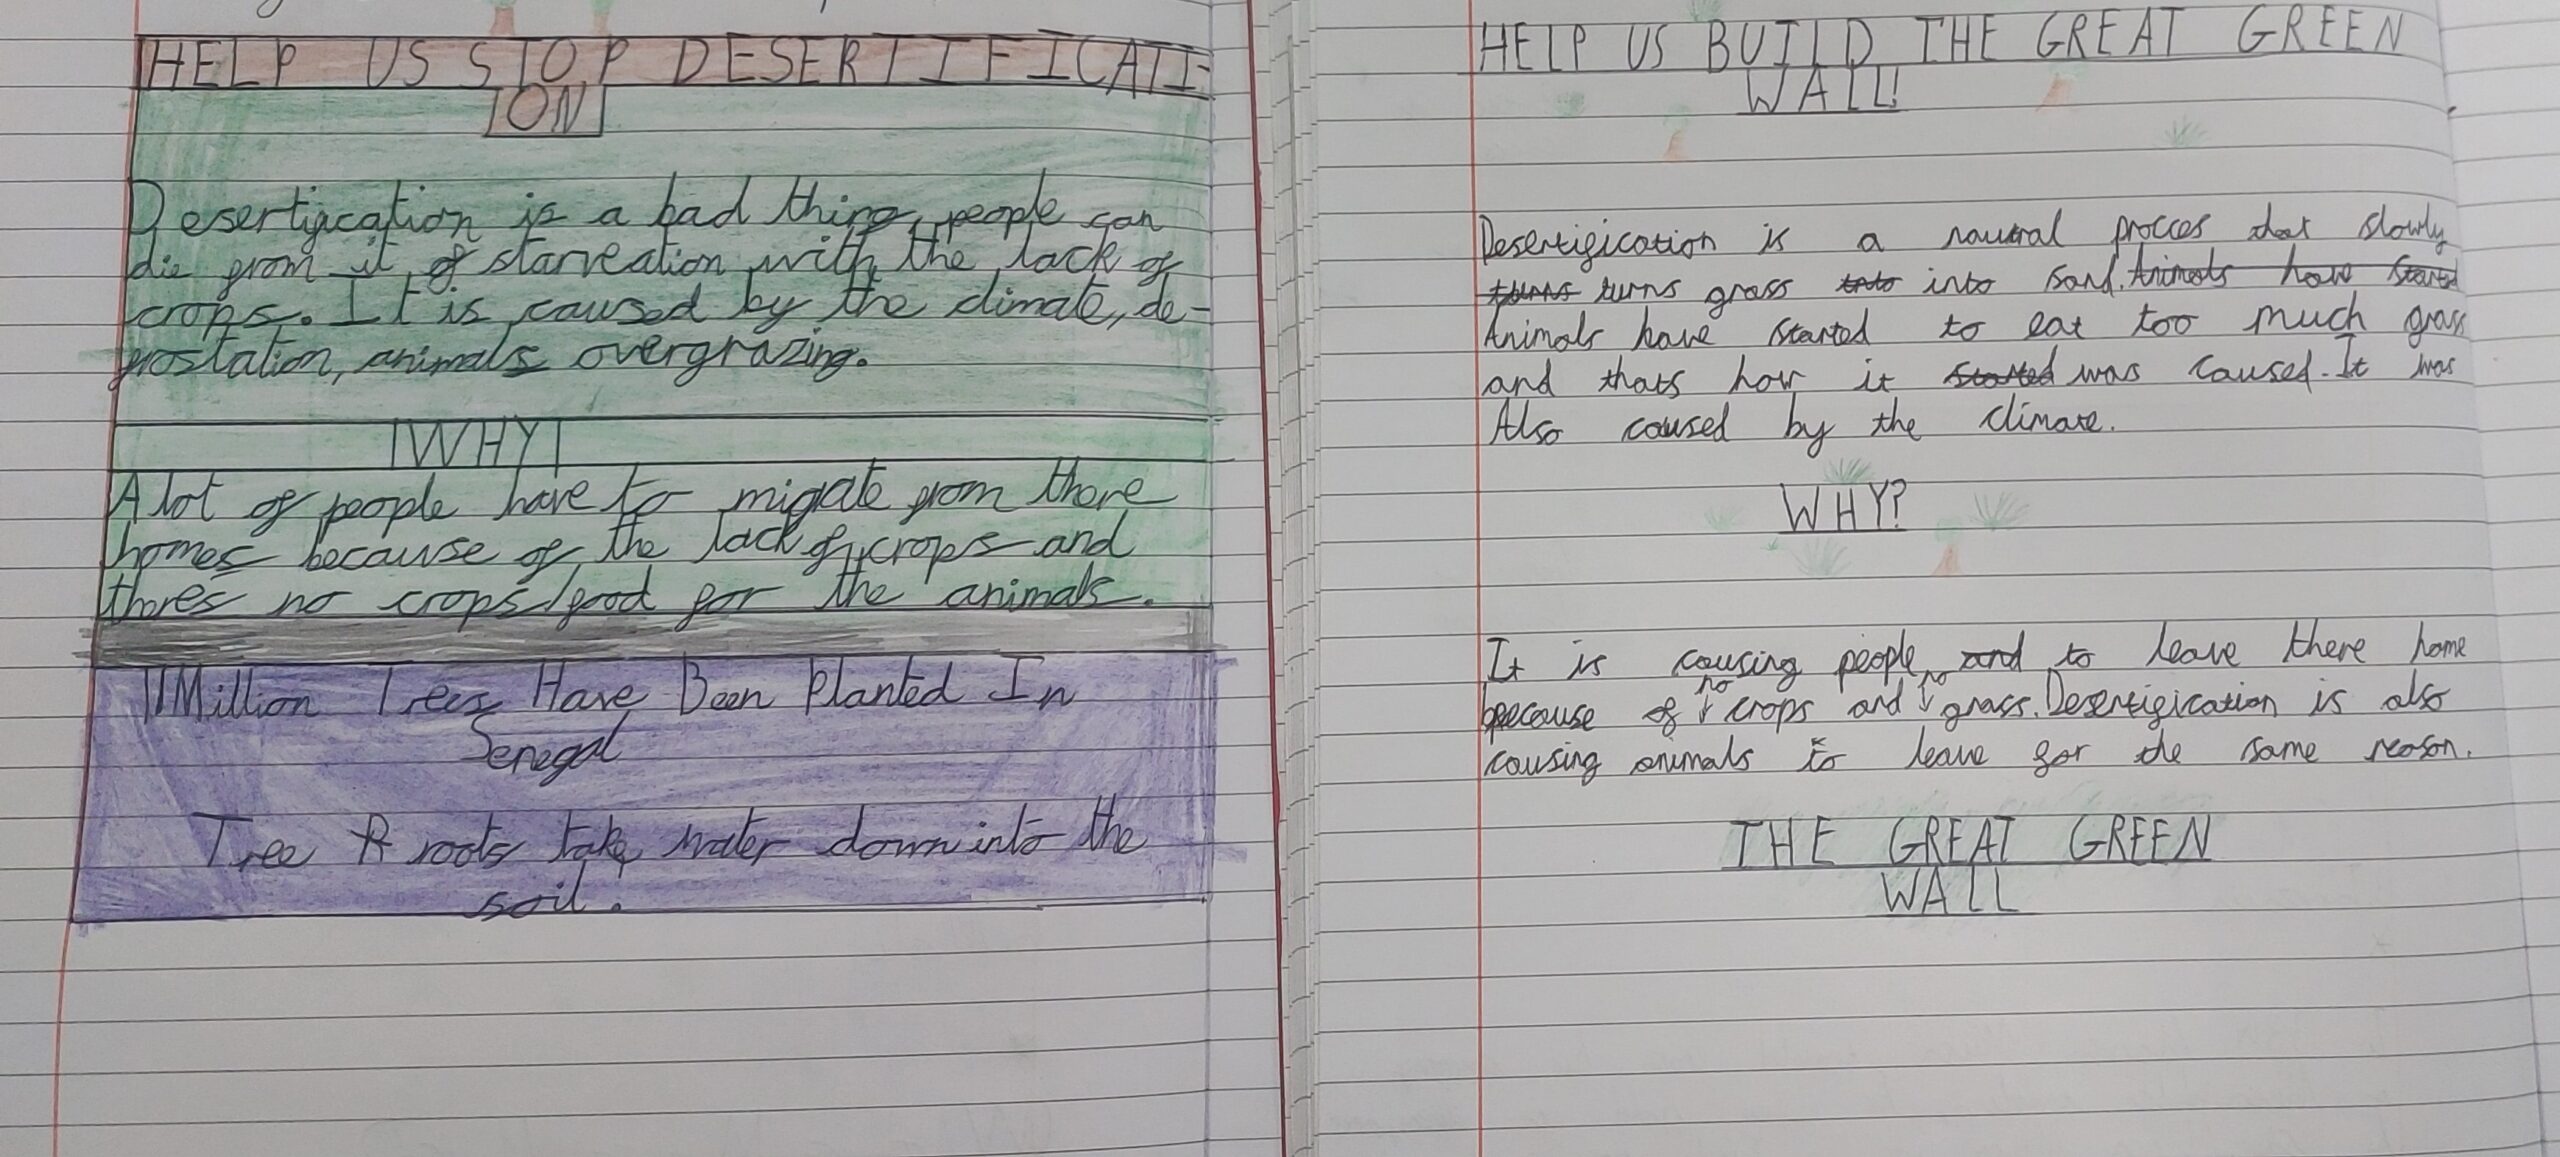 HELP US STOP DESERTIFICATI-
ON
Desertification is a bad thing, people can
die from it of starveation with the lack of
crops. It is caused by the climate, de-
frostation, animals overgrazing.
WHY
A lot of people have to migrate from there
homes because of the lack of crops and
theres no crops/food for the animals.
11 Million Trees Have Been Planted In
Senegal
Tree R roots take water down into the
soil.
HELP US BUILD THE GREAT GREEN
WALL!
Desertification is a nautral procces that slowly
turns turns grass into into sand. Animals have started
Animals have started to eat too much grass
and thats how it started was caused. It was
Also caused by the climate.
WHY?
It is causing people and to leave there home
because of no crops and no grass. Desertification is also
causing animals to leave for the same reason.
THE GREAT GREEN
WALL